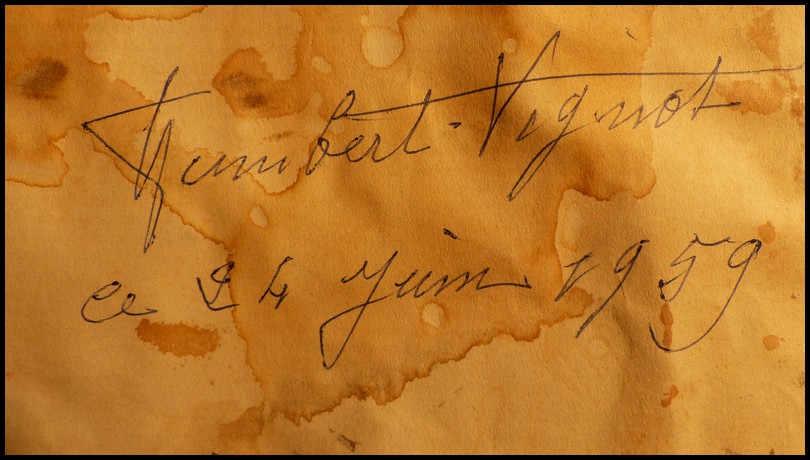 Humbert-Vignot
ce 24 Juin 1959